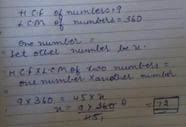 H.C.F of numbers = 9
L.C.M of numbers = 360
one number =
Let other number be x.
H.C.F X L.C.M of two numbers =
one number X another number
9 X 360 = 45 X x
x = 9 X 360 = 72
45